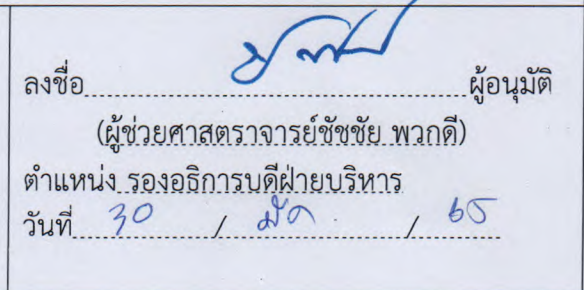 ลงชื่อ ผู้อนุมัติ
(ผู้ช่วยศาสตราจารย์ชัชชัย พวกดี)
ตำแหน่ง รองอธิการบดีฝ่ายบริหาร
วันที่ 30 / มีค. / 65